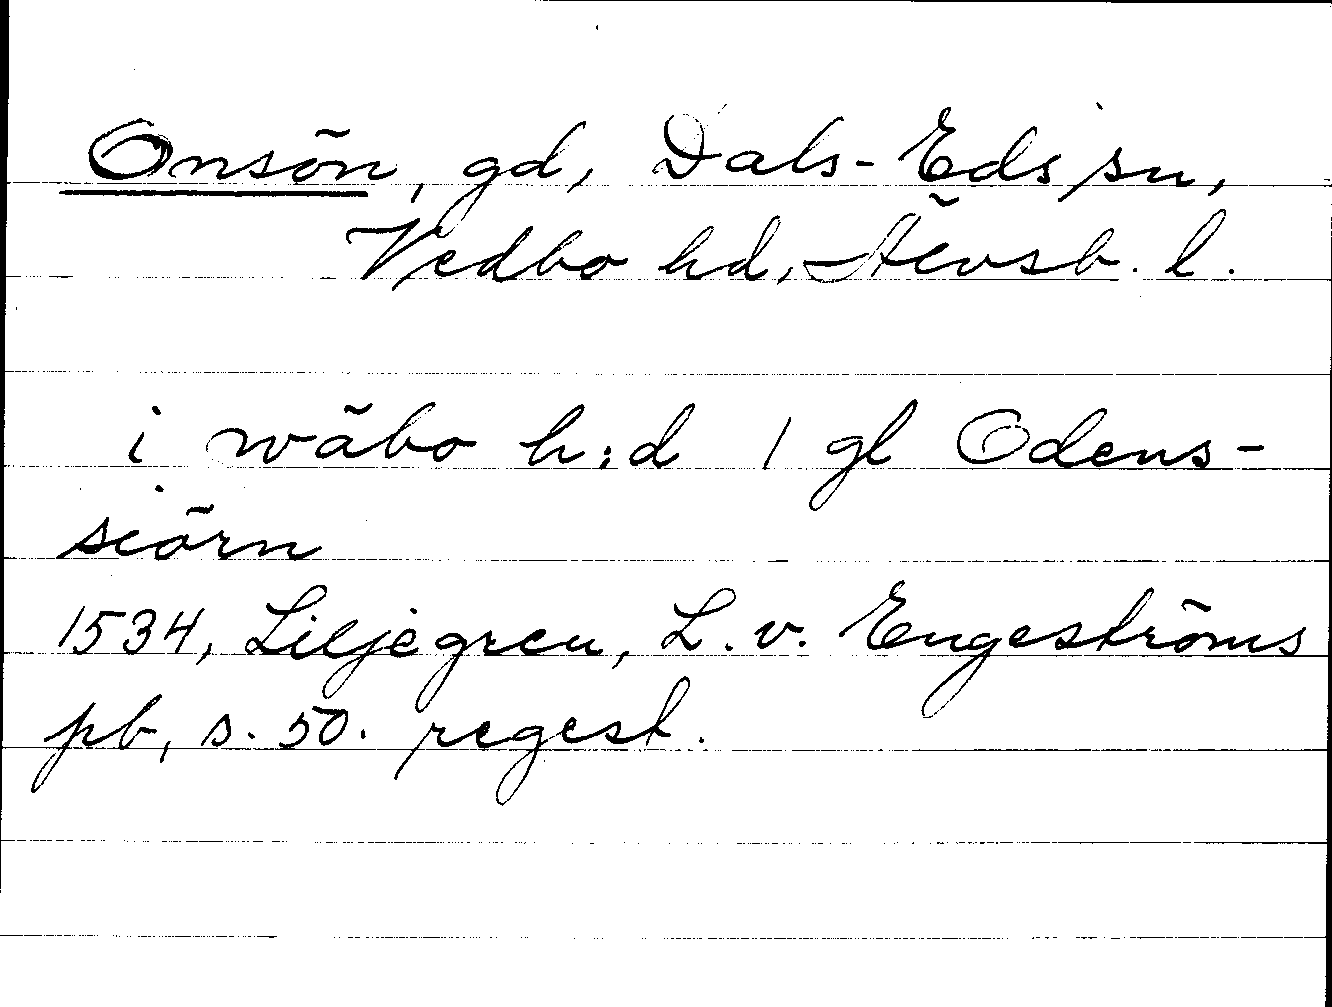 Onsön, gd, Dals-Eds sn,
Vedbo hd, Älvsb. l.
i wäbo h:d 1 gl Odens-
siörn
1534, Liljegren, L. v. Engeströms
pb, s. 50. regest.